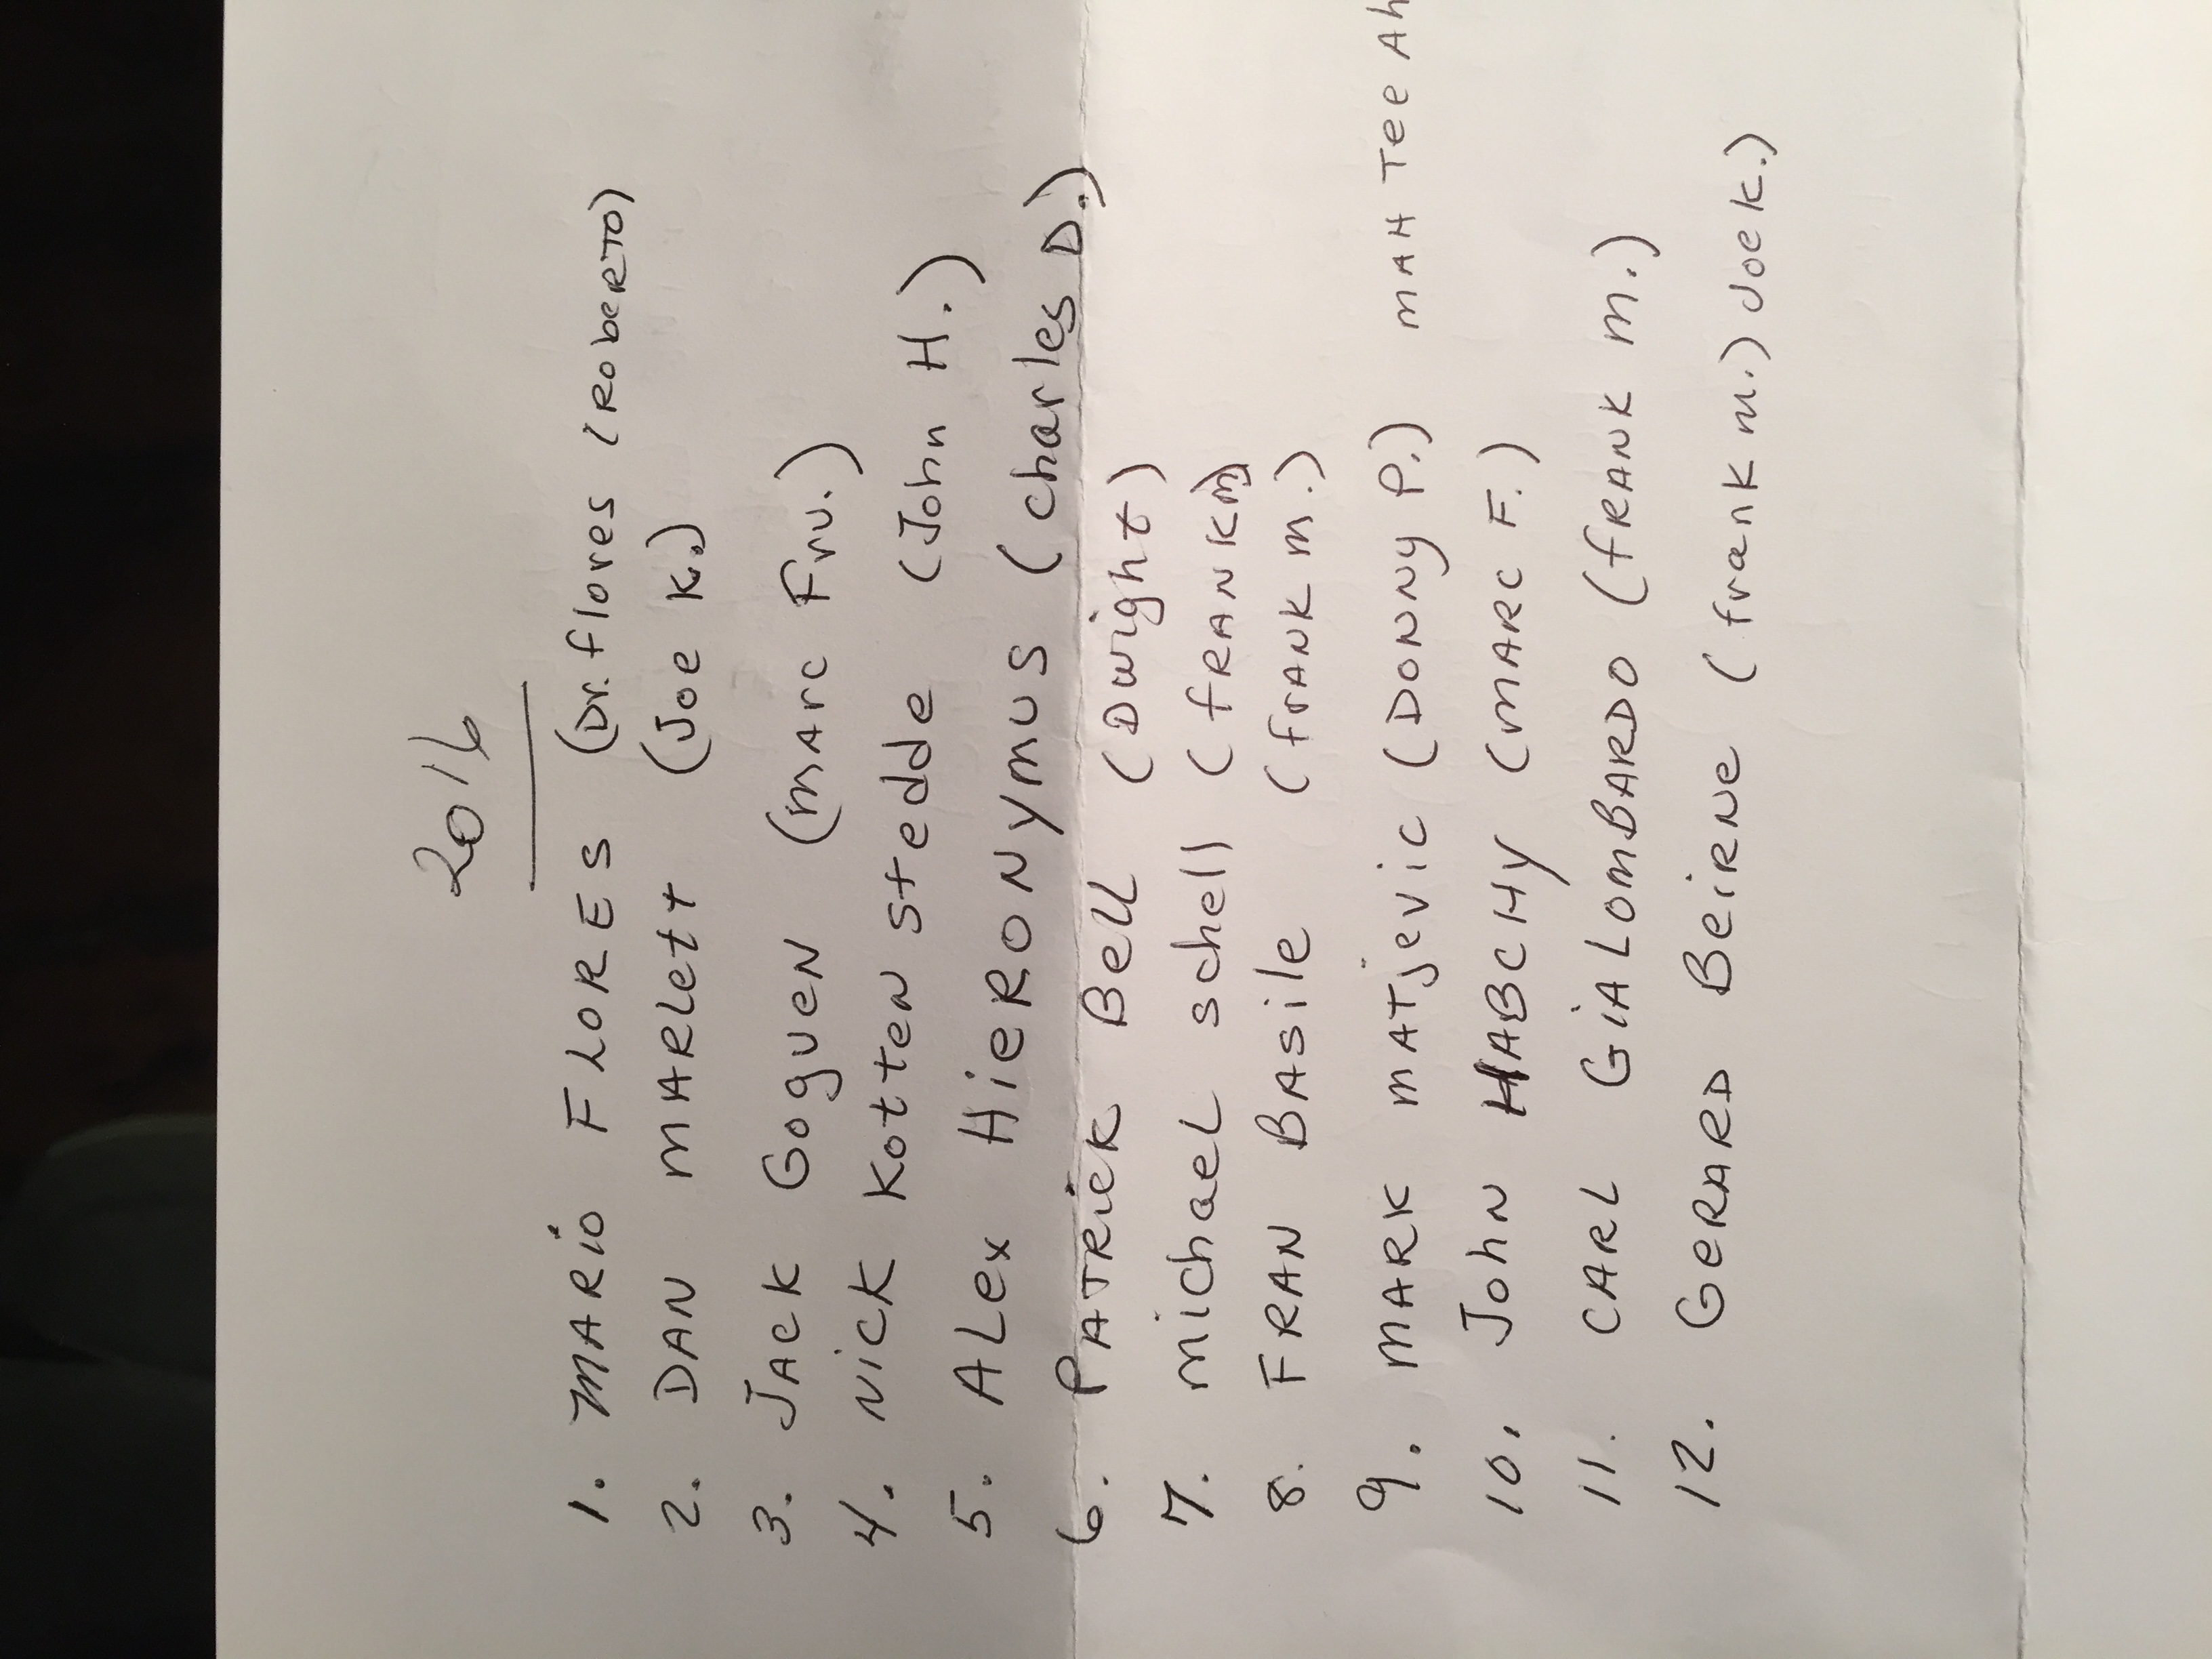 2016
1. MARIO FLORES (Dr. flores (ROBERTO)
2. DAN MARLETT (Joe K.)
3. JACK GOGUEN (MARC Fru.)
4. NICK Kotten stedde (John H.)
5. ALex HIERONYMUS (charles D.)
6. PATRICK Bell (Dwight)
7. michaeL schell (FRANK m)
8. FRAN BASile (FRANK m.)
9. MARK MATjevic (DONNY P.) MAH Tee Ah
10. John HABCHY (MARC F.)
11. CARL GiALOMBARDO (FRANK M.)
12. GERARD BeiRNe (frank m.) Joe K.)